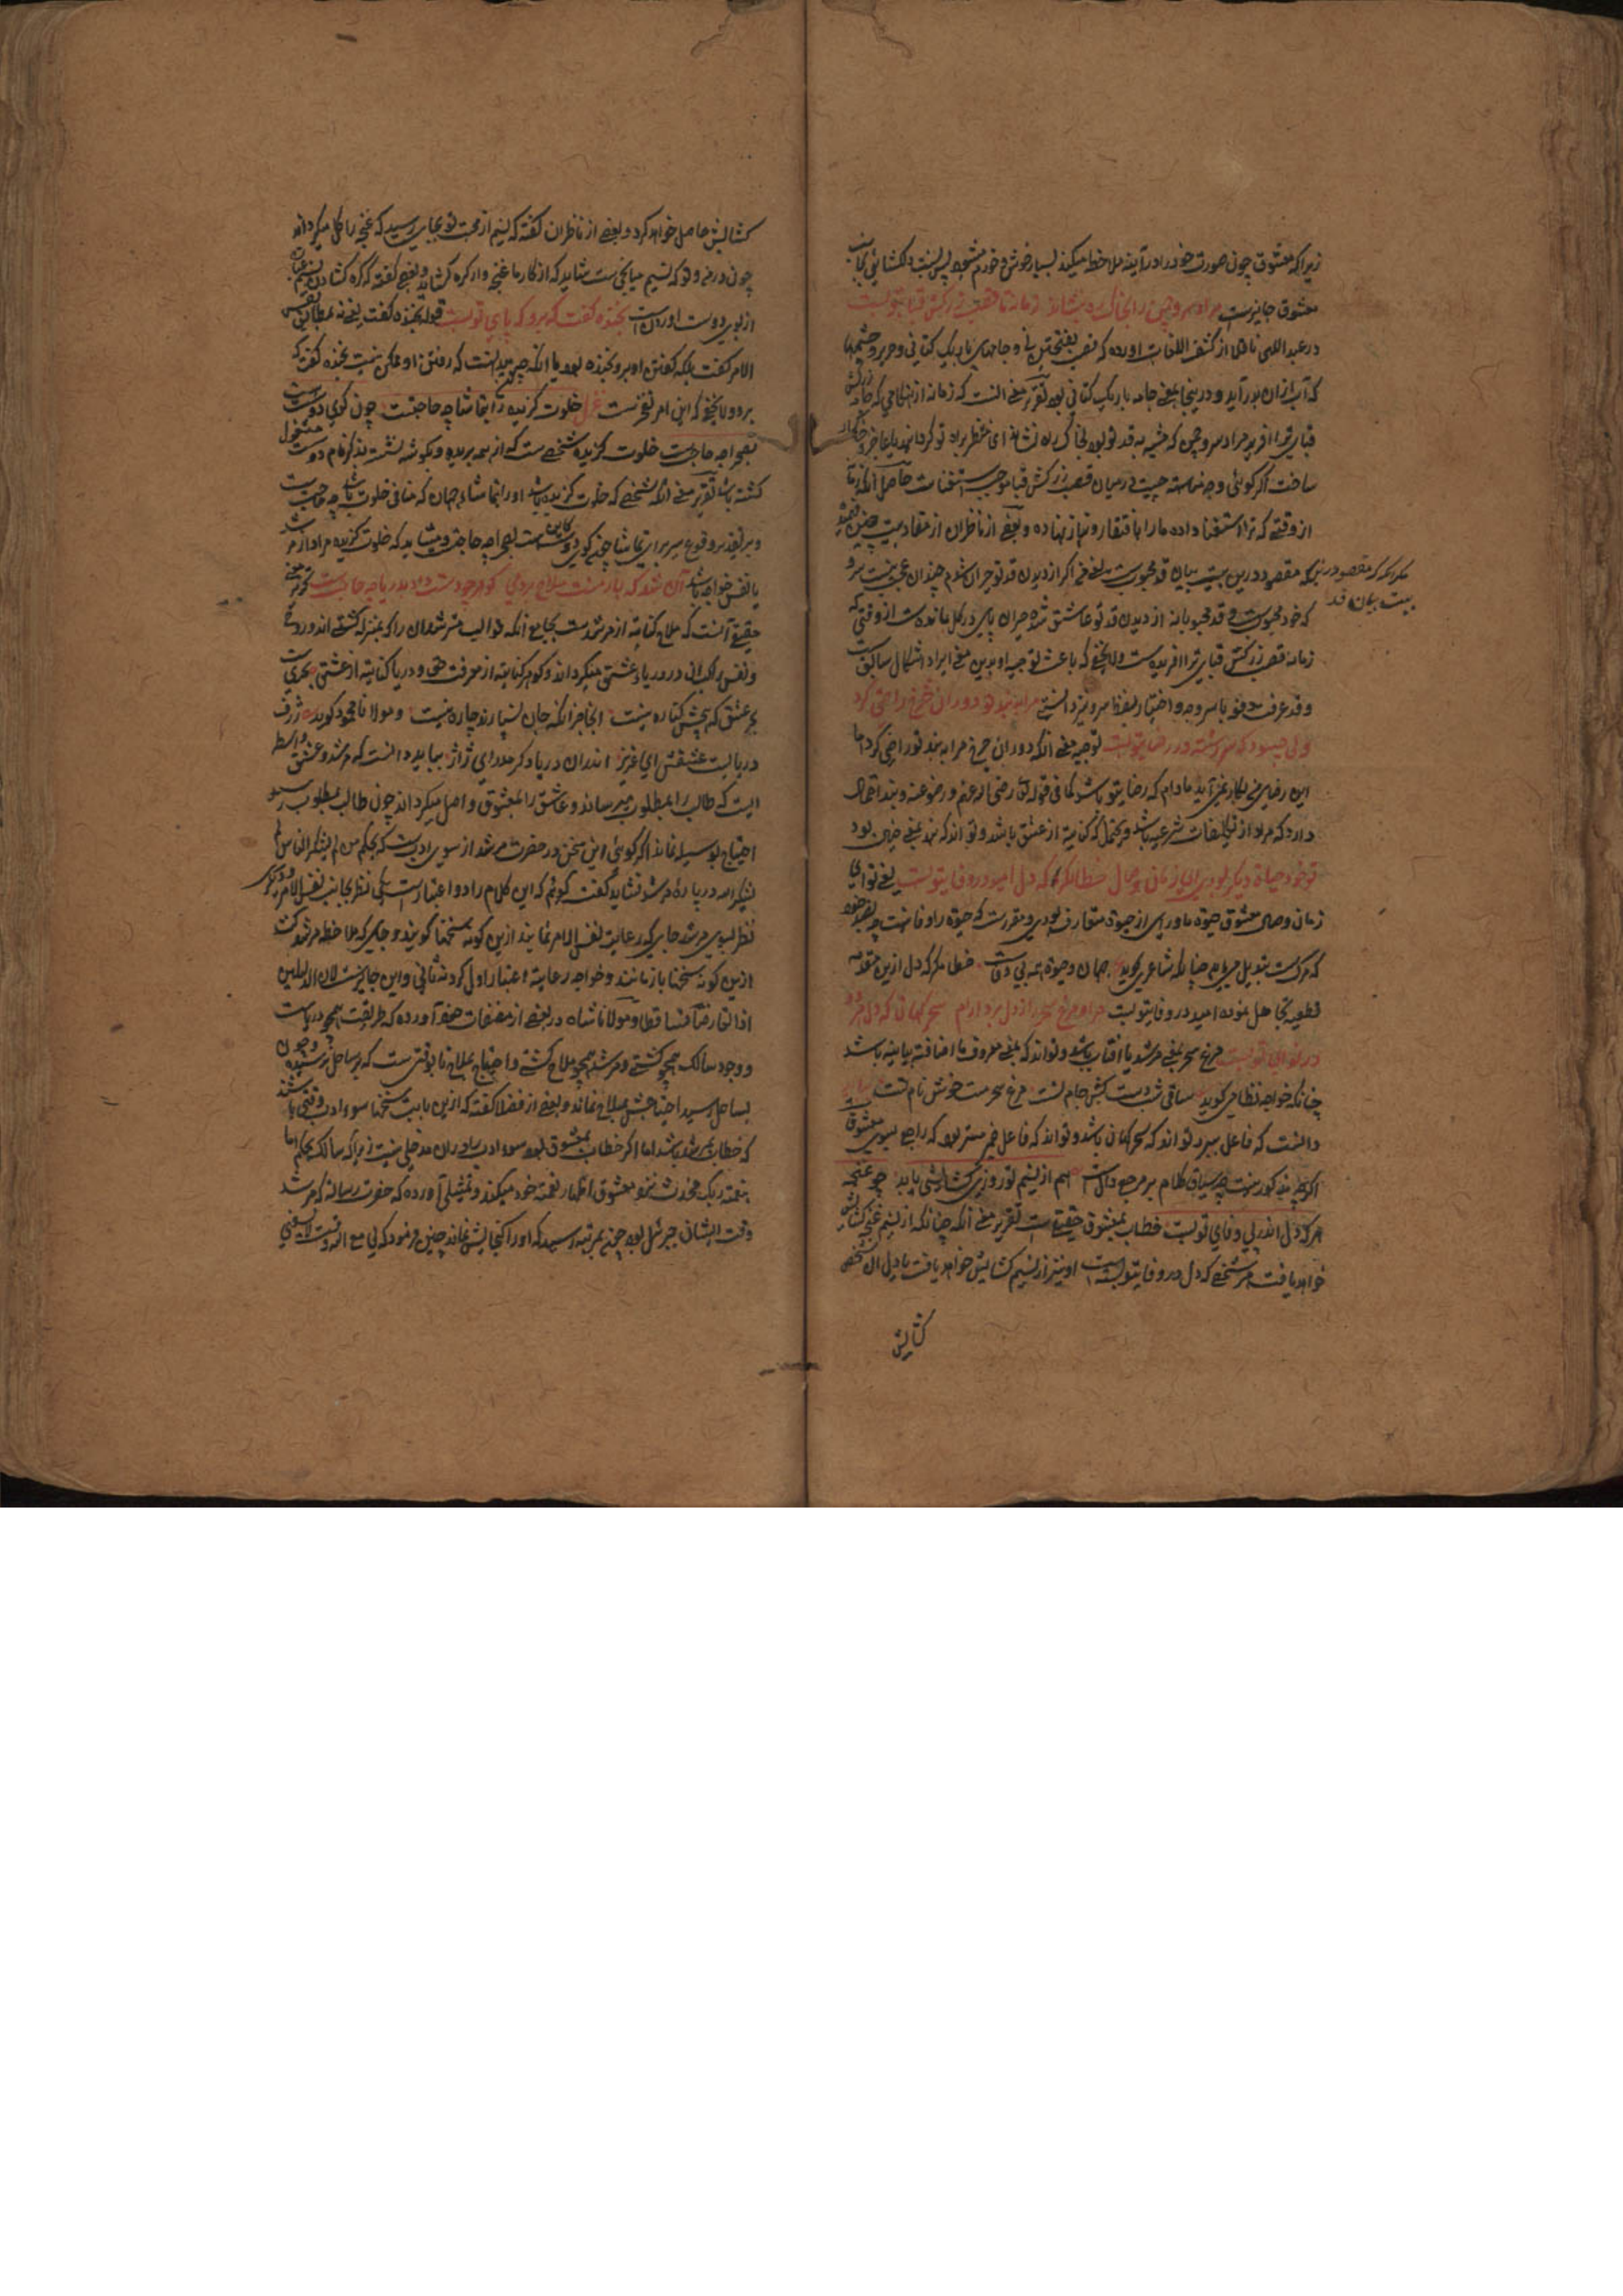 زیرا که معشوق چون صورت خود را در آینه ملاحظه میکند بسیار خوش و خرم میشود پس نسبت دلکشائی بجانب
معشوق جایزست مرا و سرو چمن را بخاک راه نشاند زمانه تا قصب زرکش قبای تو بست
در عبداللهی ناقلا از کشف اللغات آورده که قصب بفتحتین نی و جامهای باریک کتانی و حریر و چشمها
که آب ازان بدر آید و درینجا بمعنی جامه باریک کتانی بود تقریر معنی آنست که زمانه از هنگامی که جامه زرکش
قبای ترا آفرید مرا و سرو چمن که شبیه بقد تو بود بخاک راه نشاند ای منتظر براه تو گردانید یا عاجز و خاکسار
ساخت اگر گوئی وجه مناسبت چیست در میان قصب زرکش قبا و موجب استغناست حاصل آنکه زمانه
از وقتی که ترا استغنا داده ما را بافتقار و نیاز نهاده و بعضی از ناظران از مفاد بیت چنین
که مقصود درین بیت بیان قد محبوبست یعنی من اگر از دیدن قد تو حیران شدم چندان عجب نیست سرو
مگر آنکه که مقصود درین
بیت بیان قد
که خود محبوبست و قد محبوبانه از دیدن قد تو عاشق شده حیران پای در گل مانده است از وقتی که
زمانه قصب زرکش قبای ترا آفریده است و لا یخفی که باعث توجیه او بدین معنی ایراد اشکال سابقست
وقد عرفت دفعه باسر وجه و اختیار لفظ سرو نیز دانستی مرا به بند تو دوران چرخ راضی کرد
ولی چه سود که سررشته در رضای تو بست توجیه معنی آنکه دوران چرخ مرا به بند تو راضی کرد اما
این رضای من بکار نمی آید مادام که رضای تو نباشد کما فی قوله تعالی رضی الله عنهم و رضوا عنه و بند احتمال
دارد که مراد از تکلیفات شرعیه باشد و یحتمل که کنایه از عشق باشد و تواند که بند بمعنی خود بود
تو خود حیات دگر بودی ای زمان وصال خطا نگر که دل امید در وفای تو بست یعنی تو ای
زمان وصل معشوق حیوة ماورای از حیوة متعارف بودی و مقررست که حیوة را وفا نیست چه
که مرگ است تبدیل می یابد چنانکه شاعری گوید جهان و حیوة همه بی وفاست خطا نگر که دل ازین مقدمه
قطعیه تجاهل نموده امید در وفای تو بست مرا و مرغ سحر را ز دل برد آرام سحرگهان که دل هر دو
در نوای تو بست مرغ سحر بمعنی مرشد یا آفتاب باشد و تواند که بمعنی معروف یا اضافه بیانیه باشد
چنانکه خواجه نظامی گوید ساقی شب دست کش جام تست مرغ سحر مست خوش نام تست
دانست که فاعل ببرد تواند که سحرگهان باشد و تواند که فاعل ضمیر مستتر بود که راجع بسوی معشوق
اگرچه مذکور نیست چه سیاق کلام بر مرجع دال است هم از نسیم تو روزی گشایشی یابد چو غنچه
هر که دل اندر پی وفای تو بست خطاب بمعشوق حقیقی است تقریر معنی آنکه چنانکه از نسیم غنچه گشایش
خواهد یافت هر شخصی که دل در وفای تو بسته است او نیز از نسیم گشایش خواهد یافت یا دل آن شخص
گشایش
گشایش حاصل خواهد کرد و بعضی از ناظران گفته که نسیم از محبت تو بجای رسید که غنچه را گل میگرداند
چون در من و تو که نسیم میانجی ست شاید که از کار ما غنچه وار گره گشاید و بعضی گفته که گره گشادن نسیم
از بوی دوست آوردن است بخنده گفت که برو که پای تو بست قوله بخنده گفت یعنی نه مطابق نفس
الامر گفت بلکه گفتن او برو بخنده بود یا آنکه چون میدانست که رفتن او ممکن نیست بخنده گفت که
برو و لا یخفی که این امر تعجیز ست غزل خلوت گزیده را بتماشا چه حاجتست چون کوی دوست هست
بصحرا چه حاجتست خلوت گزیده شخصی ست که از همه بریده و بگوشه نشسته بذکر نام دوست مشغول
گشته باشد تقریر معنی آنکه شخصی که خلوت گزیده باشد او را بتماشاء جهان که منافی خلوت باشد چه حاجت
و بر تقدیر وقوع سیر برای تماشا چون کوی دوست کافی ست بصحرا چه حاجت و میشاید که خلوت گزیده مراد از مرشد
یا نفس خواجه باشد آن شد که بار منت ملاح بردمی گوهر چو دست داد بدریا چه حاجتست گوهر معنی
حقیقی آنست که ملاح کنایه از مرشدست بجامع آنکه قوالب مسترشدان را که بمنزله کشتی اند در دریا
و نفس را که ازانی در دریاء عشق میگرداند و گوهر کنایه از معرفت حق و دریا کنایه از عشق بحریست
بحر عشق که هیچش کناره نیست آنجا جز آنکه جان بسپارند چاره نیست و مولانا محمود گوید ژرف
دریائیست عشقش ای عزیز اندران دریا دگر مدرای ژاژ بباید دانست که مرشد و عشق واسطه
ایست که طالب را بمطلوب میرساند و عاشق را بمعشوق واصل میگرداند چون طالب بمطلوب رسید
احتیاج بوسیله نماند اگر گوئی این سخن در حضرت مرشد از سوی ادبست که بحکم من لم یشکر الناس لم
یشکر الله در باره مرشد نشاید گفت گوئم که این کلام را دو اعتبارست یکی نظر بجانب نفس الامر و دیگری
نظر بسوی مرشد جای که رعایت نفس الامر نمایند ازین گونه سخنها گویند و جای که ملاحظه مرشد کنند
ازین گونه سخنها باز مانند و خواجه رعایت اعتبار اول کرده نه ثانی و این جایزست لان الدلیلین
اذا تعارضا تساقطا و مولانا شاه در بعضی از مصنفات خود آورده که طریقت همچو دریاست
و وجود سالک همچو کشتی و مرشد همچو ملاح کشتی و احتیاج بملاح تا بوقتی ست که بر ساحل نرسیده و چون
بساحل رسید احتیاجش بملاح نماند و بعضی از فضلا گفته که ازین بابت سخنها سوء ادب وقتی باشد
که خطاب بمرشد باشد اما اگر خطاب بمعشوق بود سوء ادب را دران مدخلی نیست زیرا که سالک بحکم اما
بنعمة ربک فحدث نزد معشوق اظهار نعمت خود میکند و تمثیلی آورده که حضرت رساله که مرشد
وقت ایشان جبرئیل بود چون بمرتبه رسید که او را گنجایش نماند چنین فرمود که لی مع الله وقت لا یسعنی